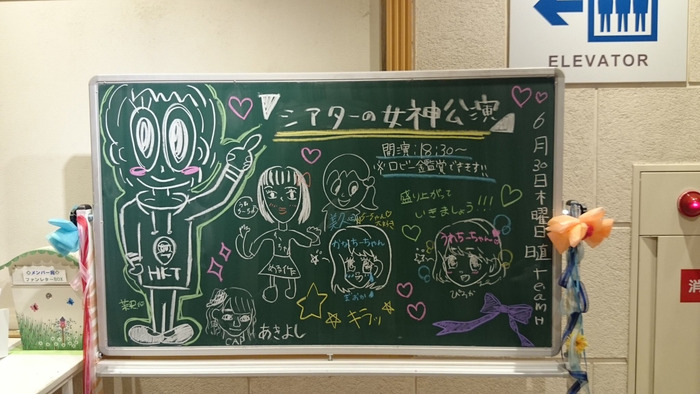 ELEVATOR
シアターの女神公演
開演:18:30〜
※ロビー鑑賞できます!!
盛り上がって
いきましょう!!!
6月30日木曜日
日直 teamH
うれちーちゃん♡
ぴろか
かなちーちゃん
まおか
美久
あきよし
CAN
キラッ
HKT
○メンバー宛○
ファンレターBOX
消